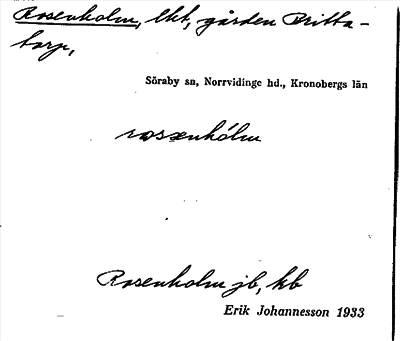 Rosenholm, lht, gården Britta-
torp,
Söraby sn, Norrvidinge hd., Kronobergs län
rosenhólm
Rosenholm jb, kb
Erik Johannesson 1933